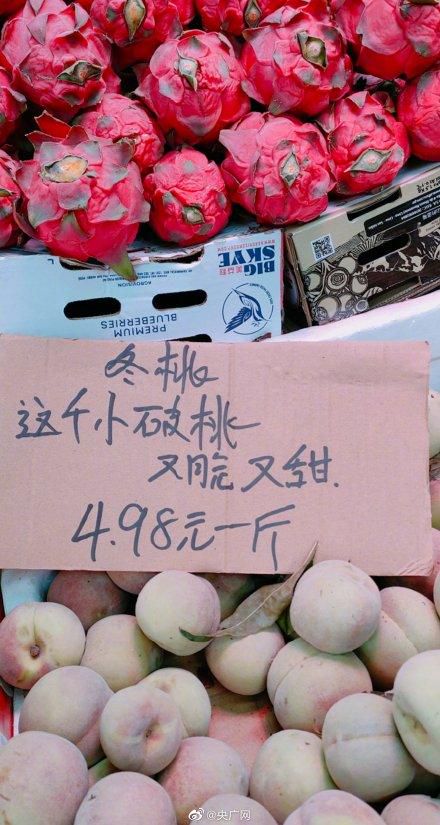 BIG
SKYE
PREMIUM
BLUEBERRIES
冬桃
这个小破桃
又脆又甜.
4.98元一斤
@央广网